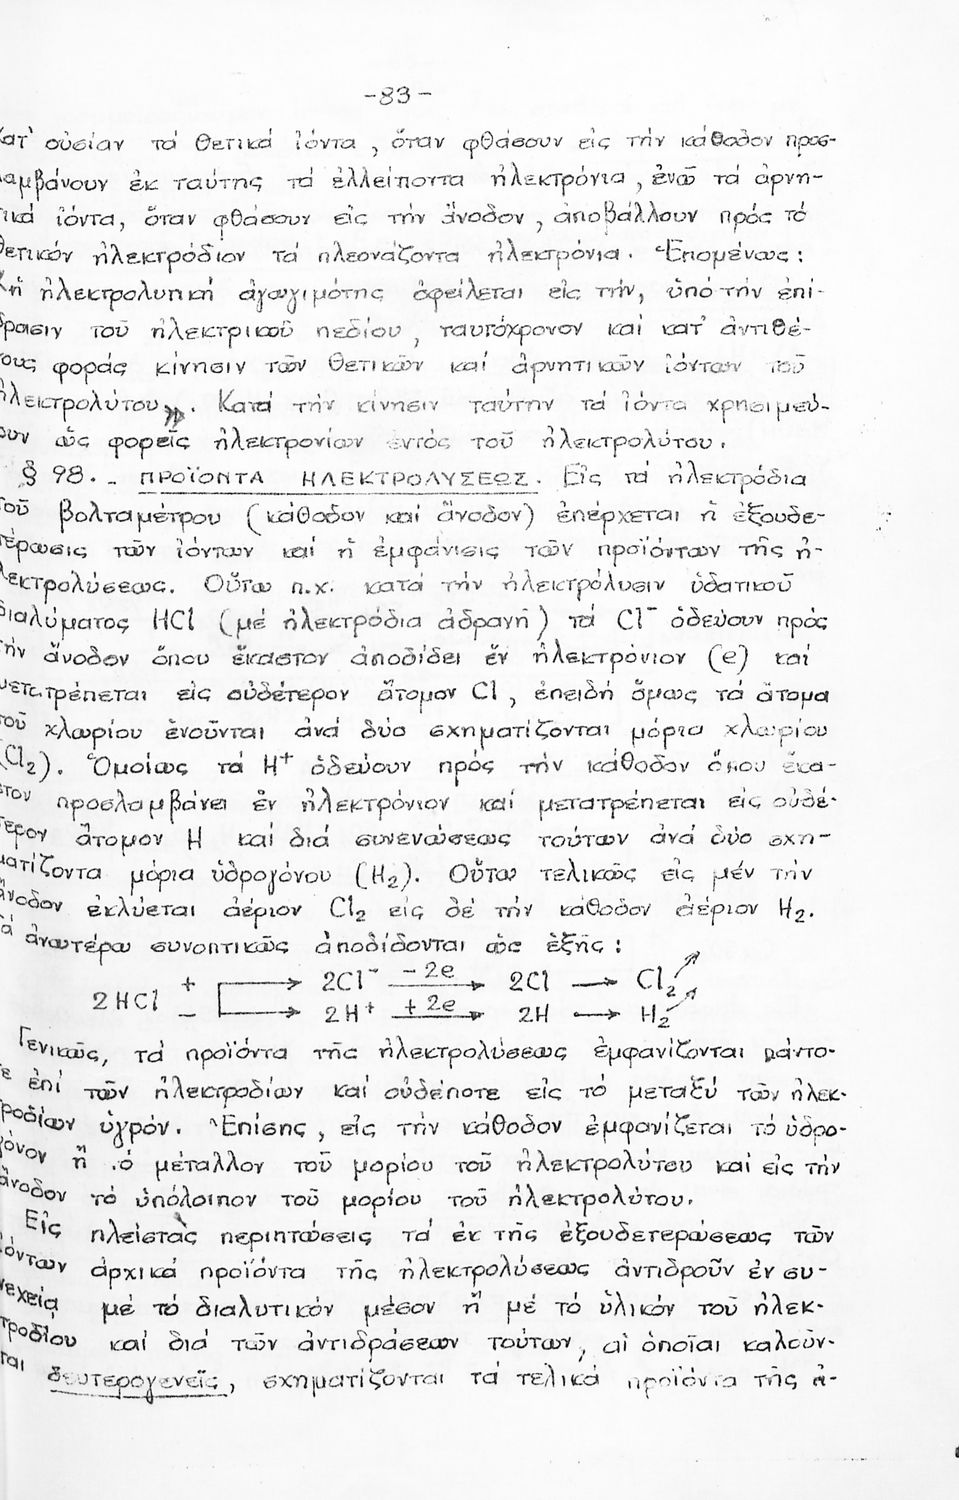 -83-
κατ' οὐσίαν τά θετικά ἰόντα, ὅταν φθάσουν εἰς τήν κάθοδον προσ-
λαμβάνουν ἐκ ταύτης τά ἐλλείποντα ἠλεκτρόνια, ἐνῶ τά ἀρνη-
τικά ἰόντα, ὅταν φθάσουν εἰς τήν ἄνοδον, ἀποβάλλουν πρός τό
θετικόν ἠλεκτρόδιον τά πλεονάζοντα ἠλεκτρόνια. Ἑπομένως:
«ἡ ἠλεκτρολυτική ἀγωγιμότης ὀφείλεται εἰς τήν, ὑπό τήν ἐπί-
δρασιν τοῦ ἠλεκτρικοῦ πεδίου, ταυτόχρονον καί κατ' ἀντιθέ-
τους φοράς κίνησιν τῶν θετικῶν καί ἀρνητικῶν ἰόντων τοῦ
ἠλεκτρολύτου». Κατά τήν κίνησιν ταύτην τά ἰόντα χρησιμεύ-
ουν ὡς φορεῖς ἠλεκτρονίων ἐντός τοῦ ἠλεκτρολύτου.
§ 98.- ΠΡΟΪΟΝΤΑ ΗΛΕΚΤΡΟΛΥΣΕΩΣ. Εἰς τά ἠλεκτρόδια
τοῦ βολταμέτρου (κάθοδον καί ἄνοδον) ἐπέρχεται ἡ ἐξουδε-
τέρωσις τῶν ἰόντων καί ἡ ἐμφάνισις τῶν προϊόντων τῆς ἠ-
λεκτρολύσεως. Οὕτω π.χ. κατά τήν ἠλεκτρόλυσιν ὑδατικοῦ
διαλύματος HCl (μέ ἠλεκτρόδια ἀδρανῆ) τά Cl⁻ ὁδεύουν πρός
τήν ἄνοδον ὅπου ἕκαστον ἀποδίδει ἕν ἠλεκτρόνιον (e) καί
μετατρέπεται εἰς οὐδέτερον ἄτομον Cl, ἐπειδή ὅμως τά ἄτομα
τοῦ χλωρίου ἑνοῦνται ἀνά δύο σχηματίζονται μόρια χλωρίου
(Cl₂). Ὁμοίως τά H⁺ ὁδεύουν πρός τήν κάθοδον ὅπου ἕκα-
στον προσλαμβάνει ἕν ἠλεκτρόνιον καί μετατρέπεται εἰς οὐδέ-
τερον ἄτομον H καί διά συνενώσεως τούτων ἀνά δύο σχη-
ματίζοντα μόρια ὑδρογόνου (H₂). Οὕτω τελικῶς εἰς μέν τήν
ἄνοδον ἐκλύεται ἀέριον Cl₂ εἰς δέ τήν κάθοδον ἀέριον H₂.
Τά ἀνωτέρω συνοπτικῶς ἀποδίδονται ὡς ἑξῆς:
2HCl + → 2Cl⁻ -2e → 2Cl → Cl₂ ↗
− → 2H⁺ +2e → 2H → H₂ ↗
Γενικῶς, τά προϊόντα τῆς ἠλεκτρολύσεως ἐμφανίζονται πάντο-
τε ἐπί τῶν ἠλεκτροδίων καί οὐδέποτε εἰς τό μεταξύ τῶν ἠλεκ-
τροδίων ὑγρόν. Ἐπίσης, εἰς τήν κάθοδον ἐμφανίζεται τό ὑδρο-
γόνον ἤ τό μέταλλον τοῦ μορίου τοῦ ἠλεκτρολύτου καί εἰς τήν
ἄνοδον τό ὑπόλοιπον τοῦ μορίου τοῦ ἠλεκτρολύτου.
Εἰς πλείστας περιπτώσεις τά ἐκ τῆς ἐξουδετερώσεως τῶν
ἰόντων ἀρχικά προϊόντα τῆς ἠλεκτρολύσεως ἀντιδροῦν ἐν συ-
νεχείᾳ μέ τό διαλυτικόν μέσον ἤ μέ τό ὑλικόν τοῦ ἠλεκ-
τροδίου καί διά τῶν ἀντιδράσεων τούτων, αἱ ὁποῖαι καλοῦν-
ται δευτερογενεῖς, σχηματίζονται τά τελικά προϊόντα τῆς ἠ-